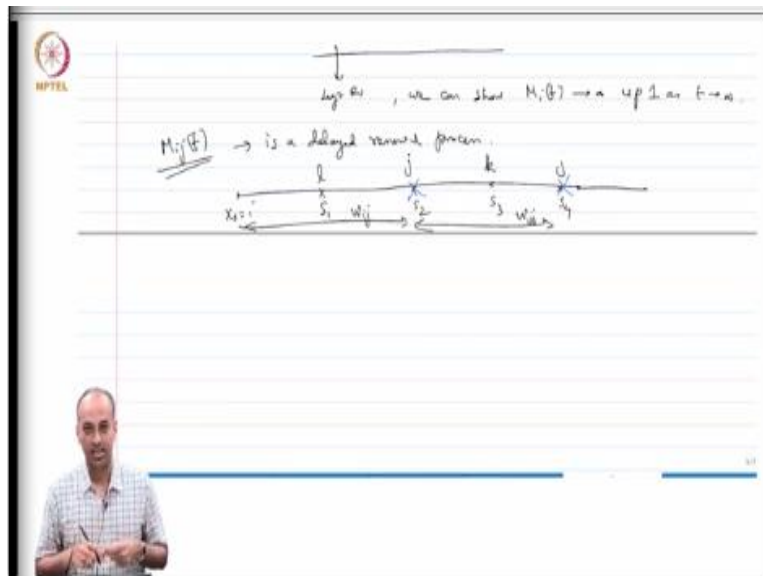 NPTEL
, we can show Mi(t) → ∞ wp 1 as t → ∞.
Mij(t) → is a delayed renewal process.
l j k j
X0=i S1 Wij S2 S3 Wjj S4